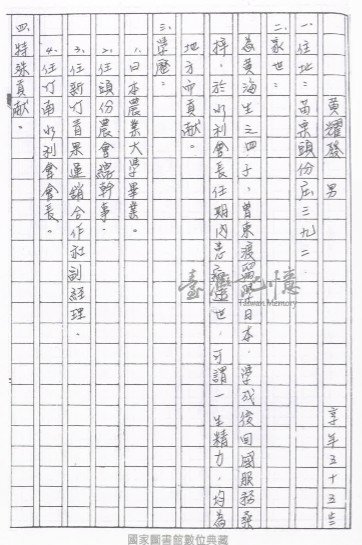 黃耀發　男　享年五十五
一、住址：苗栗頭份庄三九二．
二、家世：
為黃海生之四子，曾東渡留學日本，學成後回國服務桑
梓，於水利會長任期內患病逝世，可謂一生精力，均為
地方而貢獻。
三、學歷：
1. 日本農業大學畢業。
2. 任頭份農會總幹事．
3. 任新竹青果運銷合作社副經理．
4. 任竹南水利會會長。
四、特殊貢獻。
臺灣記憶
Taiwan Memory
國家圖書館數位典藏